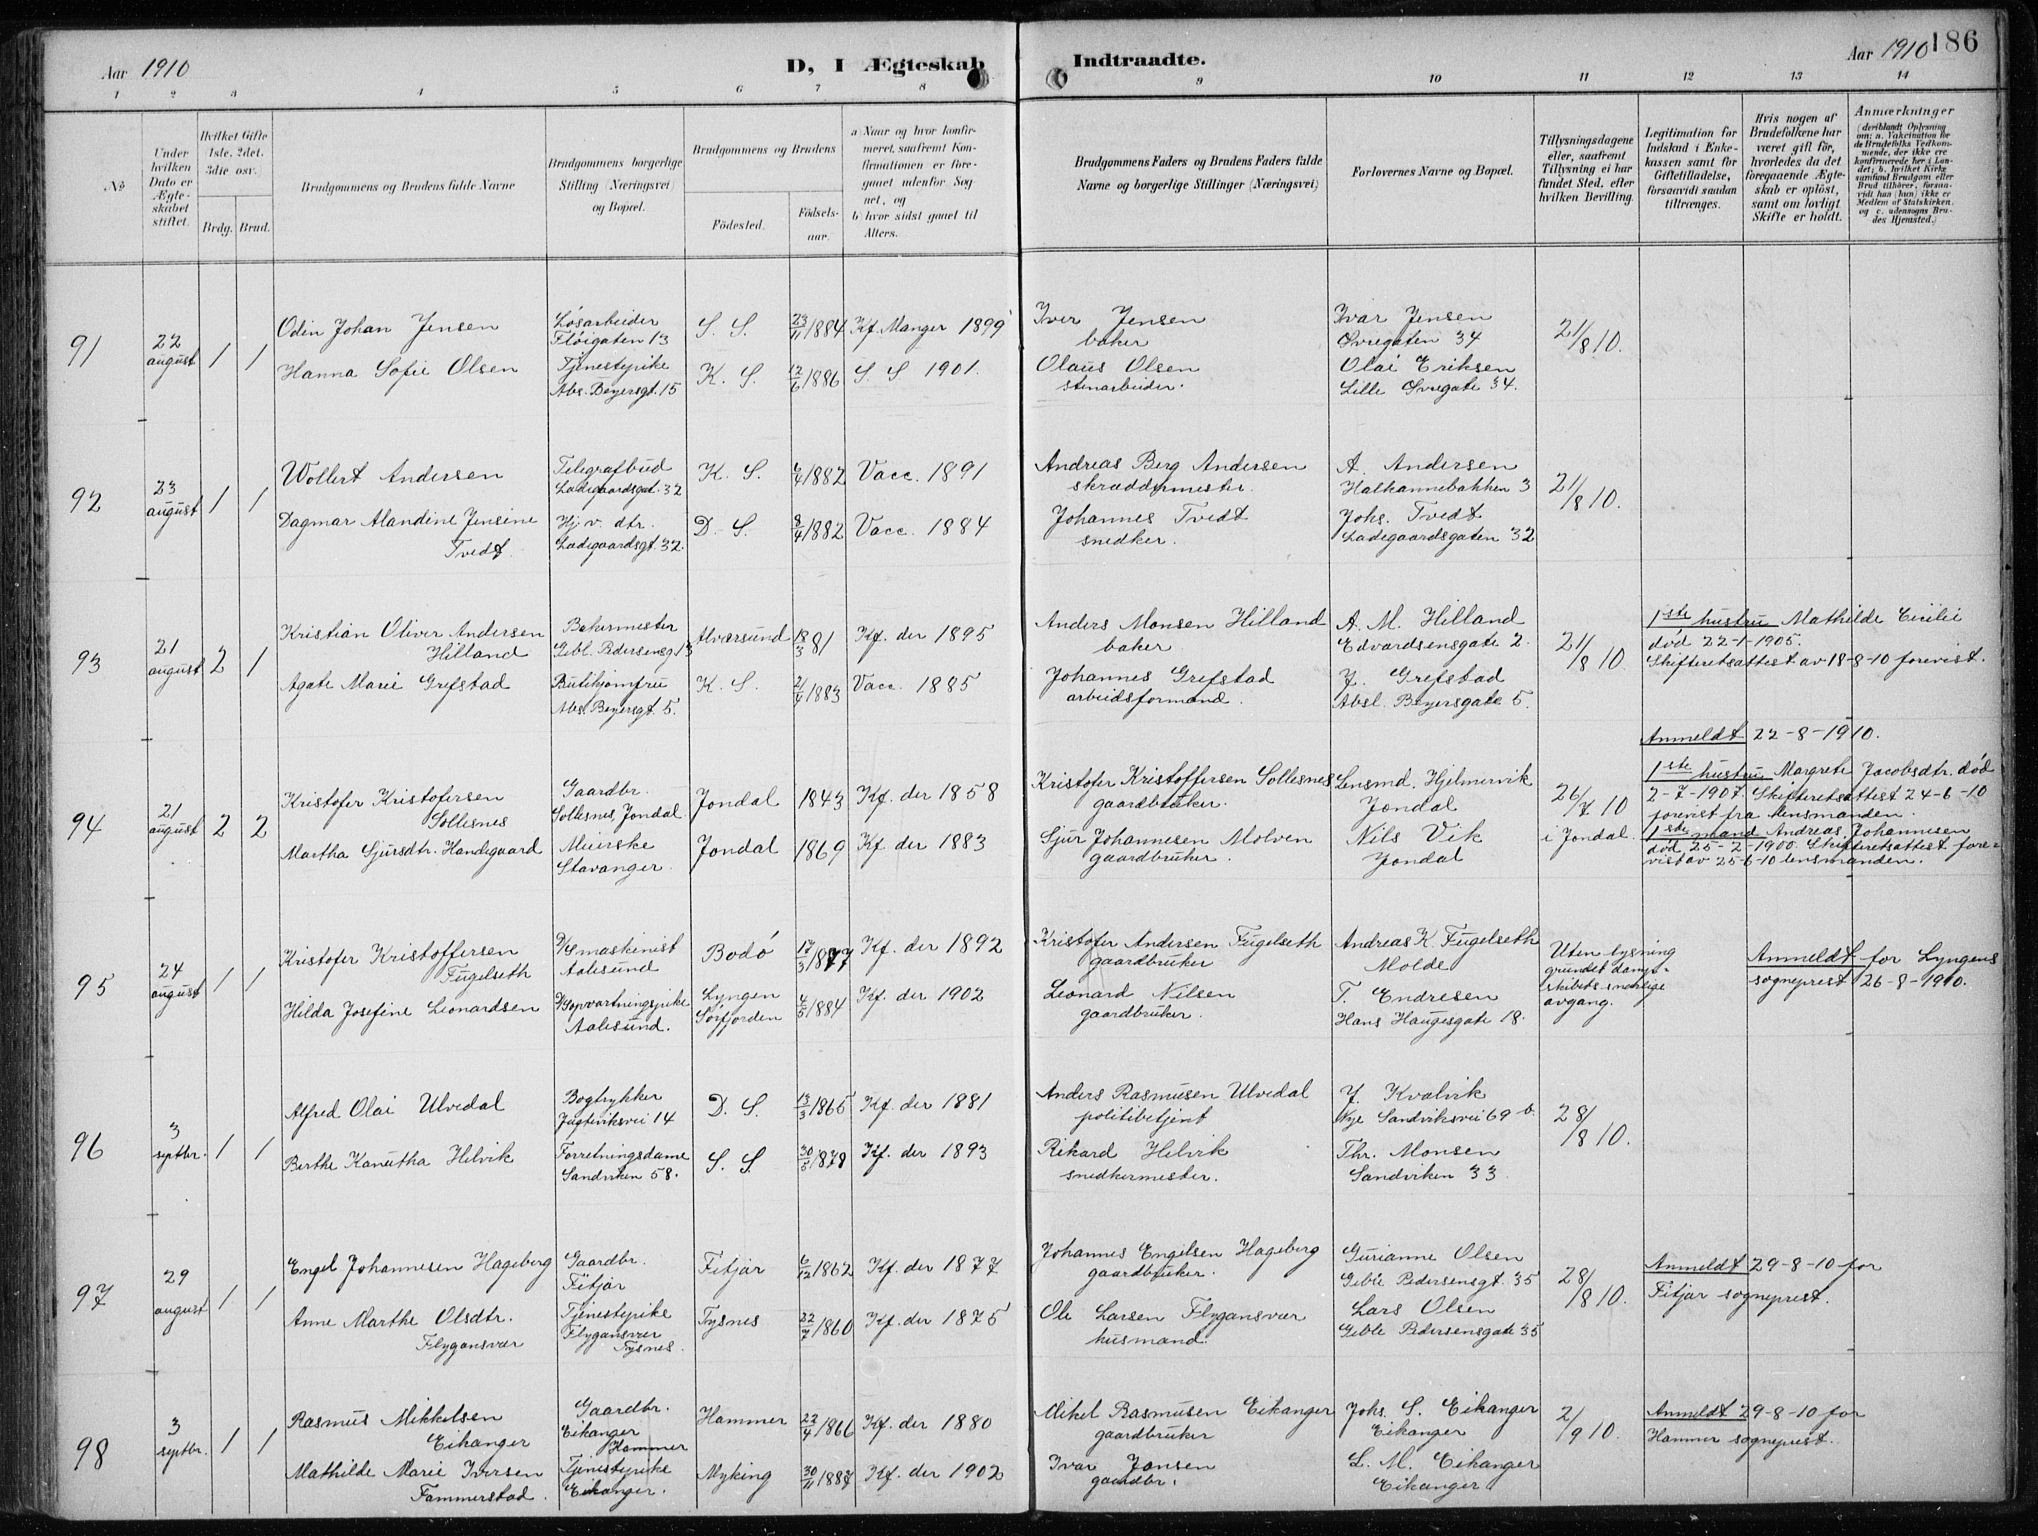 Aar 1910
D, I Ægteskab
Indtraadte.
Aar 1910
186
1 2 3 4 5 6 7 8 9 10 11 12 13 14
№
Under hvilken Dato er Ægte-skabet stiftet.
Hvilket Gifte 1ste. 2det. 3die osv.
Brdg. Brud.
Brudgommens og Brudens fulde Navne
Brudgommens borgerlige Stilling (Næringsvei) og Bopæl.
Brudgommens og Brudens
Födested.
Födsels-aar.
a Naar og hvor konfir-meret, saafremt Kon-firmationen er fore-gaaet udenfor Sog-net, og
b hvor sidst gaaet til Alters.
Brudgommens Faders og Brudens Faders fulde Navne og borgerlige Stillinger (Næringsvei)
Forlovernes Navne og Bopæl.
Tillysningsdagene eller, saafremt Tillysning ei har fundet Sted, efter hvilken Bevilling.
Legitimation for Indskud i Enke-kassen samt for Giftetilladelse, forsaavidt saadan tiltrænges.
Hvis nogen af Brudefolkene har været gift för, hvorledes da det foregaaende Ægte-skab er oplöst, samt om lovligt Skifte er holdt.
Anmærkninger
(deriblandt Oplysning om: a. Vakcination for de Brudefolks Vedkom-mende, der ikke ere konfirmerede her i Lan-det; b. hvilket Kirke-samfund Brudgom eller Brud tilhörer, forsaa-vidt han (hun) ikke er Medlem af Statskirken, og c. udensogns Bru-des Hjemsted.)
91
22 august
1 1
Odin Johan Jensen
Løsarbeider
Fløigaten 13
S. S.
23/11 1884
Kf. Manger 1899
Iver Jensen
baker
Ivar Jensen
Øvregaten 34
21/8 10.
Hanna Sofie Olsen
Tjenestepike
Abs. Beyersgt. 15
K. S.
12/6 1886
S. S 1901.
Olaus Olsen
stenarbeider.
Olai Eriksen
Lille Øvregate 34.
92
23 august
1 1
Wollert Andersen
Telegrafbud
Ladegaardsgat. 32
K. S.
4/4 1882
Vacc. 1891
Andreas Berg Andersen
skræddermester.
A. Andersen
Halkannebakken 3
21/8 10.
Dagmar Alandine Jensine
Tvedt.
Hj. v. dtr.
Ladegaardsgt. 32.
D. S.
8/4 1882
Vacc. 1884
Johannes Tvedt
snedker.
Johs. Tvedt
Ladegaardsgaten 32
93
21 august
2 1
Kristian Oliver Andersen
Hilland
Bakermester
Gebl. Pedersensg 13
Alversund
18/3 81
Kf. der 1895
Anders Monsen Hilland
baker
A. M. Hilland
Edvardsensgate 2.
21/8 10.
1ste hustru Mathilde Cecilie
død 22-1-1905.
Skifteretsattest av 18-8-10 forevist.
Agate Marie Grefstad
Butikjomfru
Abs. Beyersgt. 5.
K. S.
21/4 1883
Vacc. 1885
Johannes Grefstad
arbeidsformand.
J. Grefstad
Absl. Beyersgate 5.
Anmeldt 22-8-1910.
94
21 august
2 2
Kristofer Kristofersen
Sollesnes
Gaardbr.
Sollesnes, Jondal.
Jondal
1843
Kf. der 1858
Kristofer Kristoffersen Sollesnes
gaardbruker.
Lensmd. Hjelmervik
Jondal
26/7 10
i Jondal.
1ste hustru Margrete Jacobsdtr. død
2-7-1907. Skifteretsattest 24-6-10
forevist fra lensmanden.
Martha Sjursdtr. Handegaard
Meierske
Stavanger.
Jondal
1869
Kf. der 1883
Sjur Johannesen Molven
gaardbruker.
Nils Vik
Jondal
1ste mand Andreas Johannesen
død 25-2-1900. Skifteretsattest fore-
vist av 25-6-10 lensmanden.
95
24 august
1 1
Kristofer Kristoffersen
Fugelseth
maskinist
Aalesund
Bodø
17/3 1877
Kf. der 1892
Kristofer Andersen Fugelseth
gaardbruker
Andreas K. Fugelseth
Molde
Uten lysning
grundet damp-
skibets snarlige
avgang.
Anmeldt for Lyngens
sogneprest 26-8-1910.
Hilda Josefine Leonardsen
opvartningspike
Aalesund.
Lyngen
Sørfjorden
4/5 1884
Kf. der 1902
Leonard Nilsen
gaardbruker.
T. Endresen
Hans Haugesgate 18.
96
3 septbr.
1 1
Alfred Olai Ulvedal
Bogtrykker
Jugtviksvei 14
D. S.
13/3 1865
Kf. der 1881
Anders Rasmusen Ulvedal
politibetjent
J. Kvalvik
Nye Sandviksvei 69 b.
28/8 10.
Berthe Kanutha Helvik
Forretningsdame
Sandviken 58.
S. S.
30/5 1878
Kf. der 1893
Rikard Helvik
snedkermester.
Thr. Monsen
Sandviken 33.
97
29 august
1 1
Engel Johannesen Hageberg
Gaardbr.
Fitjar
Fitjar
6/12 1862
Kf. der 1877
Johannes Engelsen Hageberg
gaardbruker.
Gurianne Olsen
Geble Pedersensgt. 35
28/8 10.
Anmeldt 29-8-10 for
Fitjar sogneprest.
Anne Marthe Olsdtr.
Flygansvær
Tjenestepike
Flygansvær
Tysnes.
Tysnes
22/7 1860
Kf. der 1875
Ole Larsen Flygansvær
husmand.
Lars Olsen
Geble Pedersensgate 35
98
3 septbr.
1 1
Rasmus Mikkelsen
Eikanger
Gaardbr.
Eikanger
Hammer
Hammer
22/4 1866
Kf. der 1880
Mikel Rasmusen Eikanger
gaardbruker
Johs. S. Eikanger
Eikanger
2/9 10.
Anmeldt 29-8-10 for
Hammer sogneprest.
Mathilde Marie Iversen
Fammerstad.
Tjenestepike
Eikanger.
Myking
30/11 1887
Kf. der 1902
Ivar Jonsen
gaardbr.
L. M. Eikanger
Eikanger